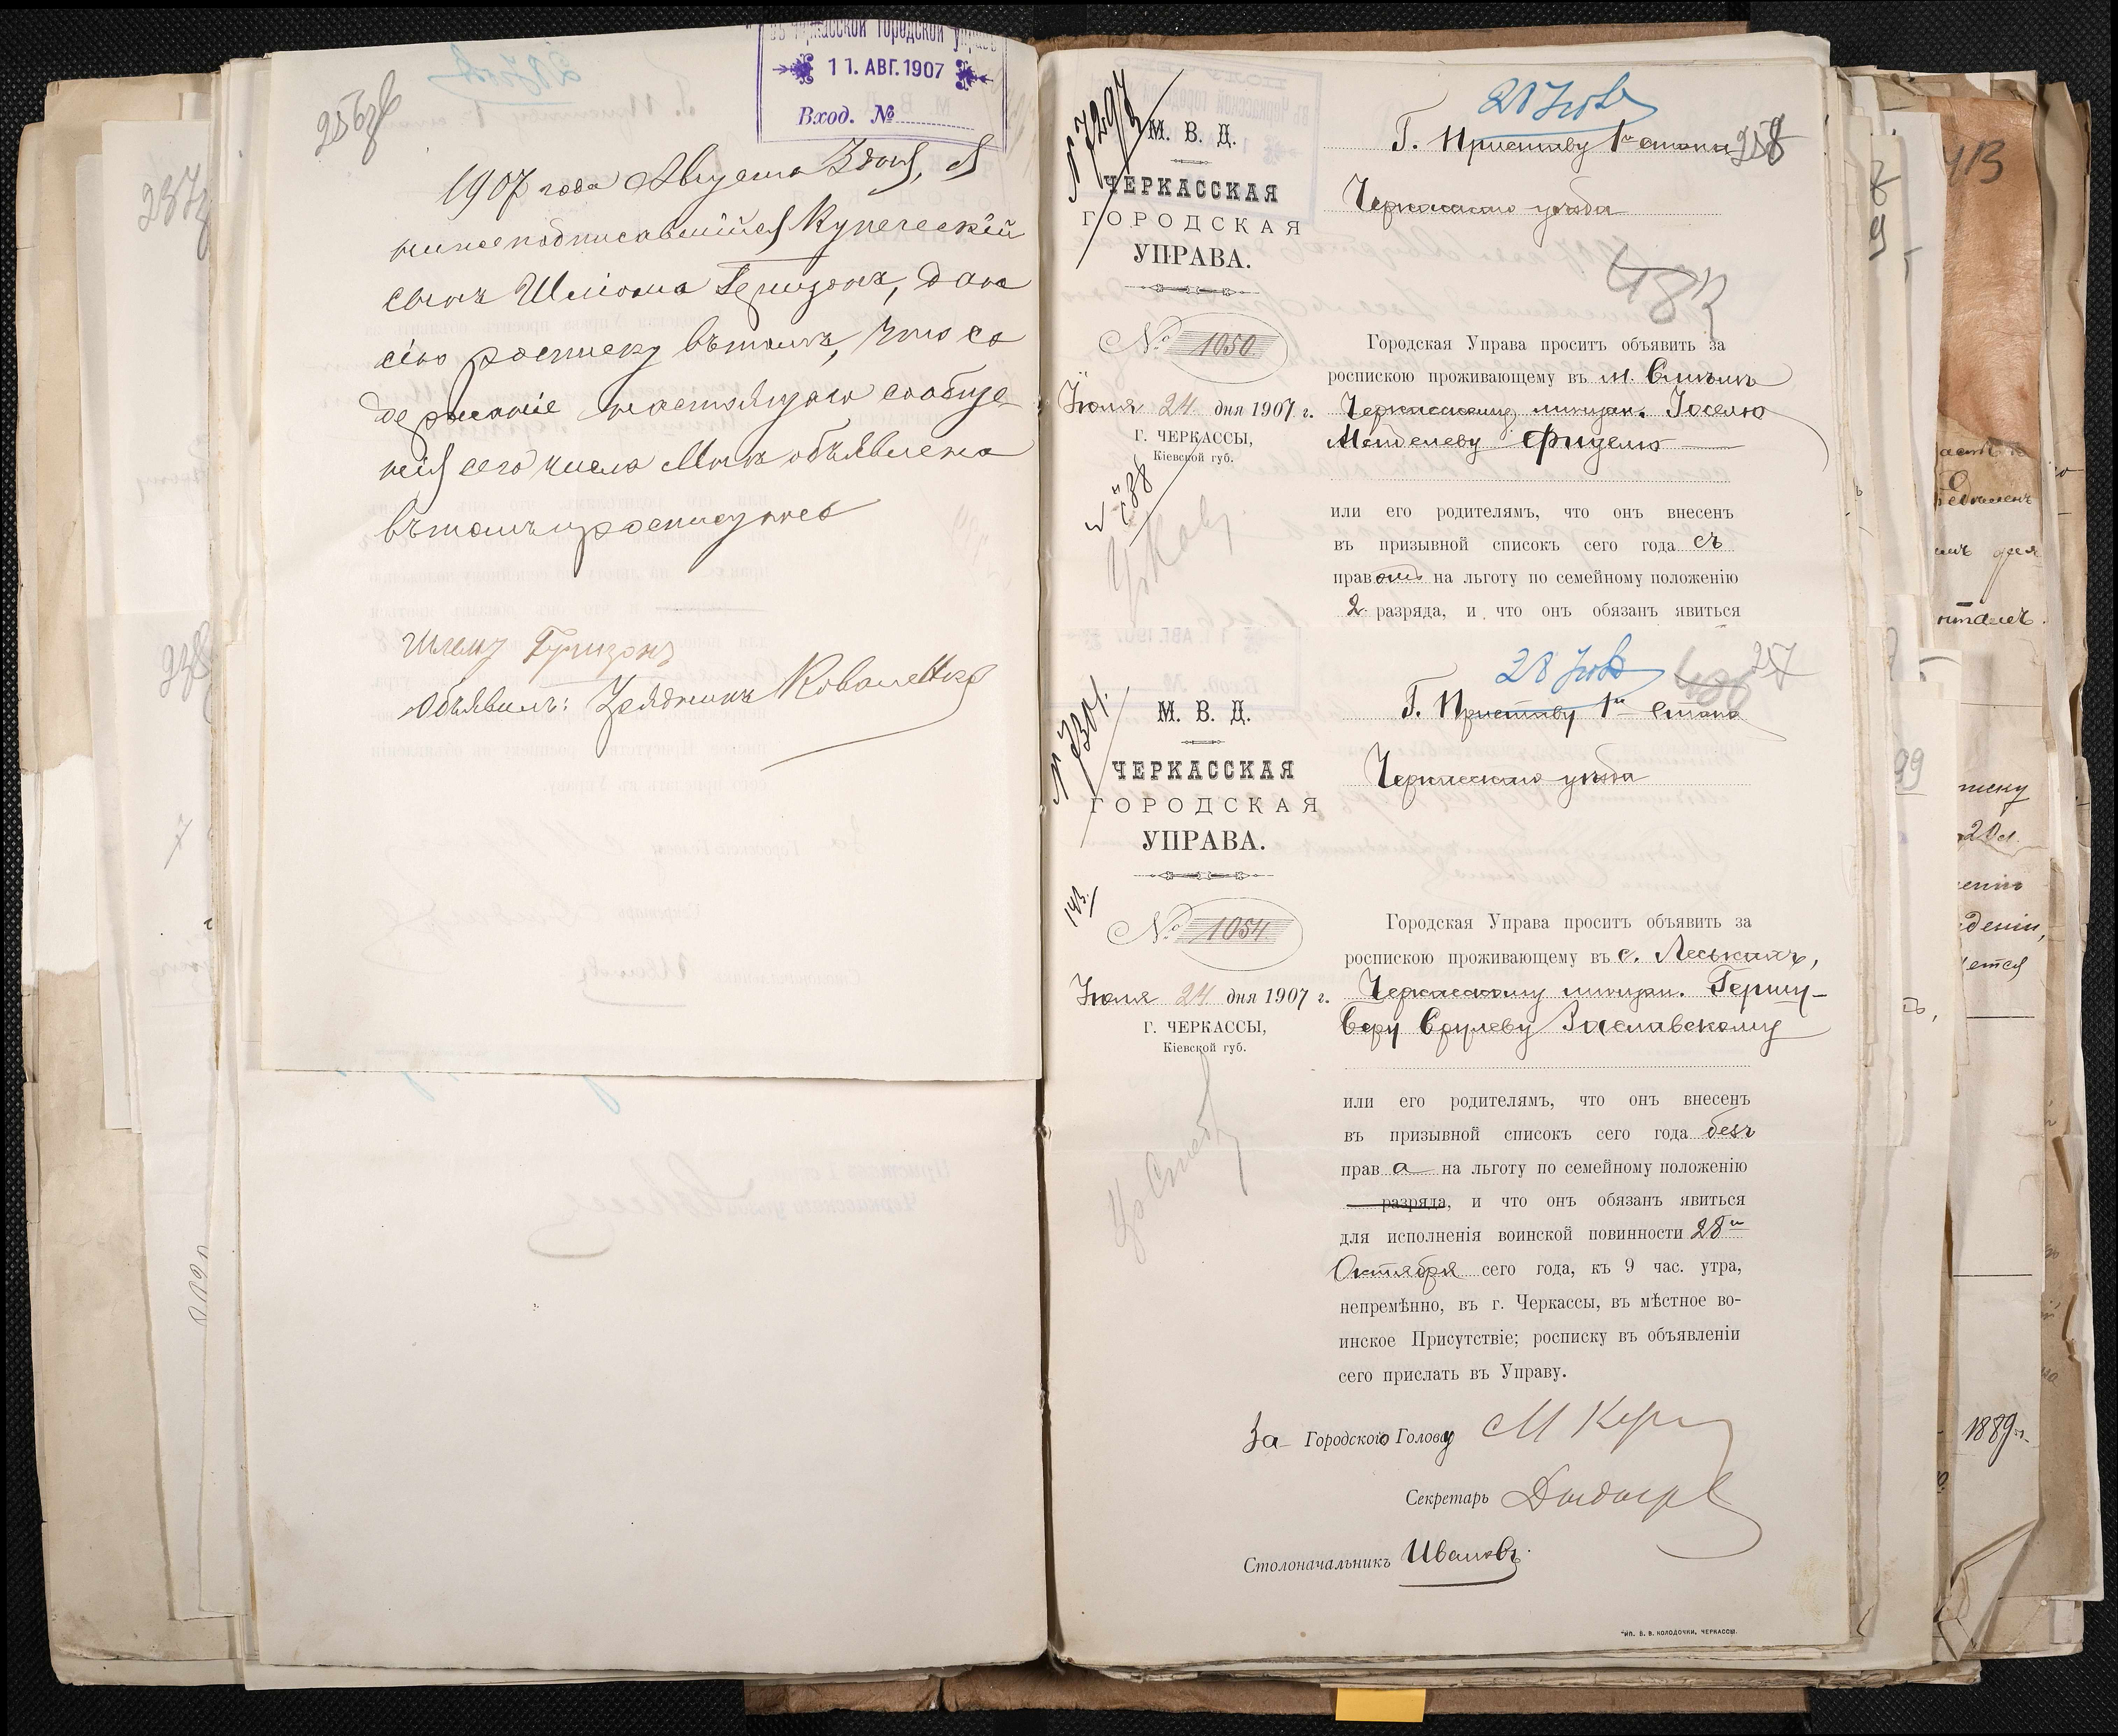 въ Черкасской городской управѣ
11. АВГ. 1907
Вход. №
256 об
1907 года Августа 3 дня, я
нижеподписавшійся Купеческій
сынъ Шліома Гершзонъ, даю
сію росписку въ томъ, что со
держаніе настоящаго сообще
нія сего числа Мнѣ объявлено
въ томъ и росписуюсь
Объявилъ: Урядникъ Коваленко
№ 7297
28 Іюля
М. В. Д.
ЧЕРКАССКАЯ
ГОРОДСКАЯ
УПРАВА.
Г. Приставу 1го стана
258
Черкасскаго уѣзда
№ 1050
Іюля 24 дня 1907 г.
Г. ЧЕРКАССЫ,
Кіевской губ.
Городская Управа проситъ объявить за
роспискою проживающему въ м. Смѣлѣ
Черкасскому мѣщан. Іоселю
Менделеву Фидель
или его родителямъ, что онъ внесенъ
въ призывной списокъ сего года съ
правомъ на льготу по семейному положенію
2 разряда, и что онъ обязанъ явиться
№ 7301.
28 Іюля
257
М. В. Д.
ЧЕРКАССКАЯ
ГОРОДСКАЯ
УПРАВА.
Г. Приставу 1го стана
Черкасскаго уѣзда
№ 1054
Іюля 24 дня 1907 г.
Г. ЧЕРКАССЫ,
Кіевской губ.
Городская Управа проситъ объявить за
роспискою проживающему въ с. Леськахъ,
Черкасскому мѣщан. Гершу-
Беру Срулеву Заславскому
или его родителямъ, что онъ внесенъ
въ призывной списокъ сего года безъ
права на льготу по семейному положенію
разряда, и что онъ обязанъ явиться
для исполненія воинской повинности 28го
Октября сего года, къ 9 час. утра,
непремѣнно, въ г. Черкассы, въ мѣстное во-
инское Присутствіе; росписку въ объявленіи
сего прислать въ Управу.
За Городского Голову
Секретарь
Столоначальникъ Ивановъ
ТИП. В. В. КОЛОДОЧКИ, ЧЕРКАССЫ.
1889 г.